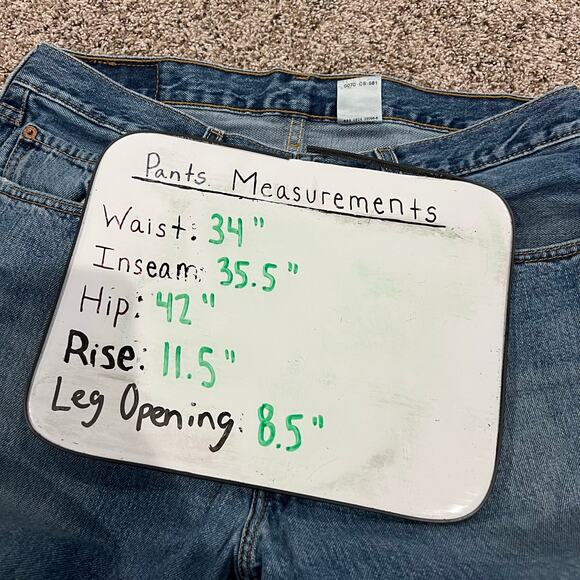 Pants Measurements
Waist: 34"
Inseam: 35.5"
Hip: 42"
Rise: 11.5"
Leg Opening: 8.5"